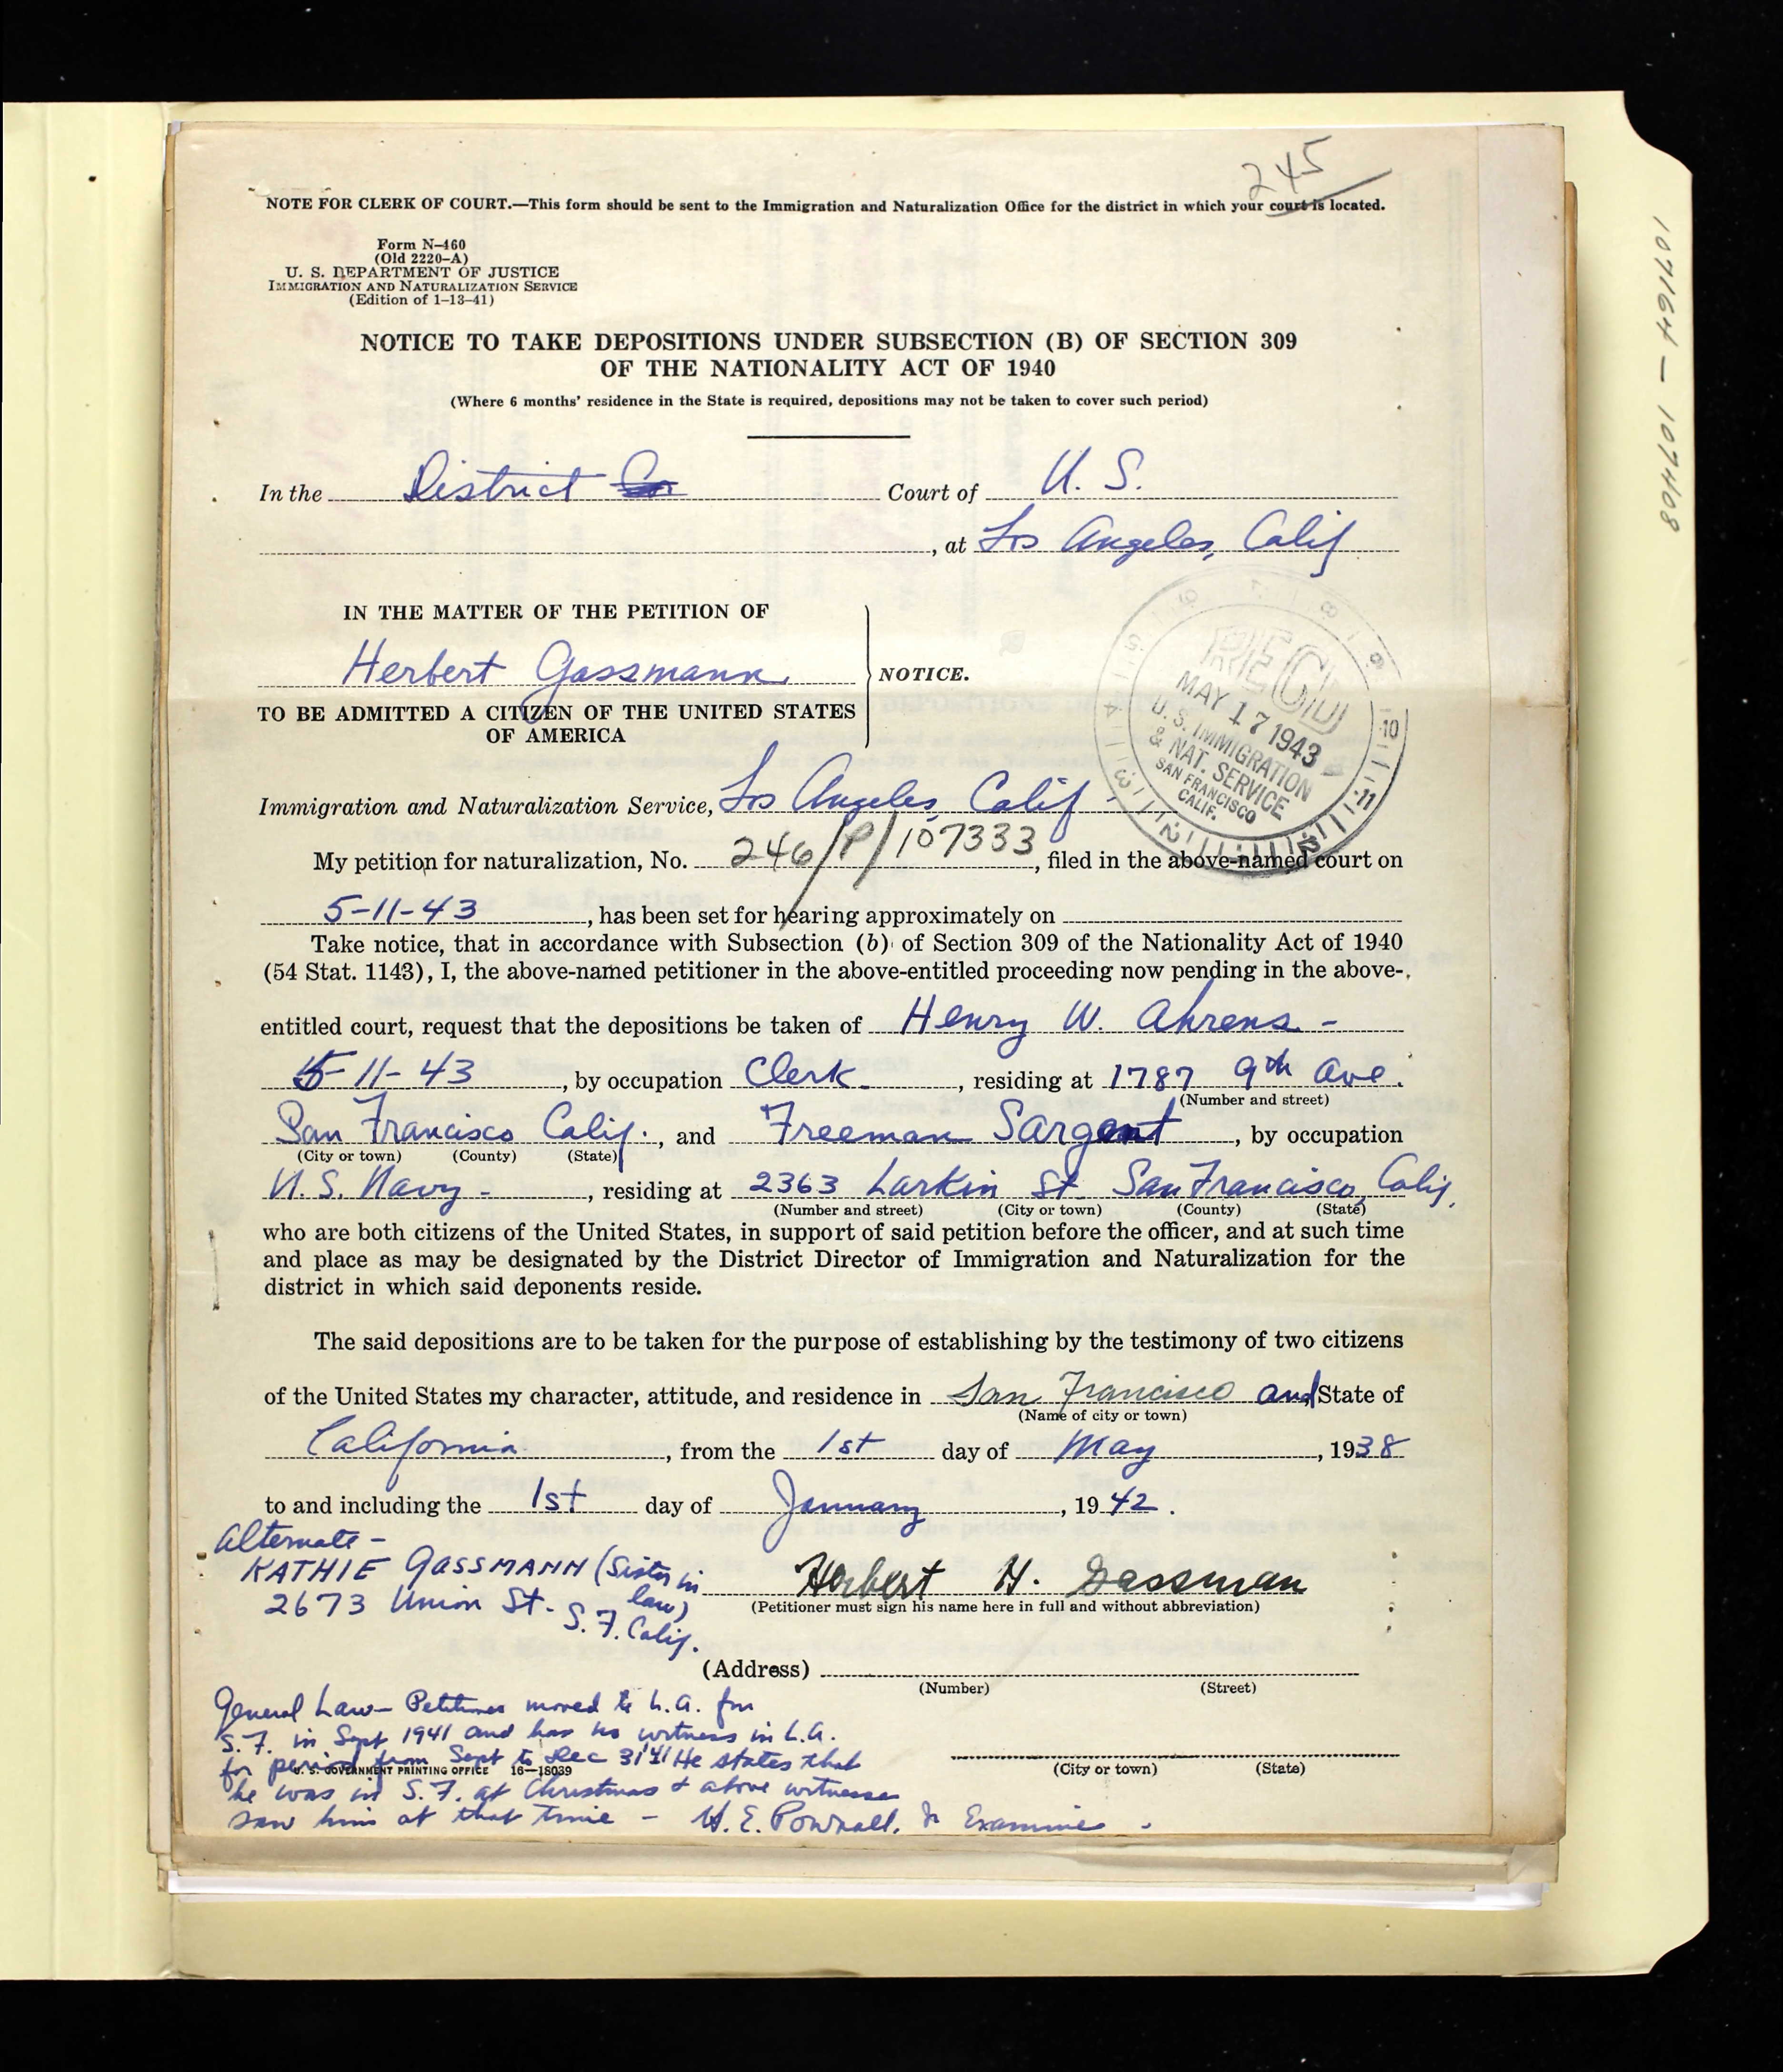 245
NOTE FOR CLERK OF COURT.—This form should be sent to the Immigration and Naturalization Office for the district in which your court is located.
Form N-460
(Old 2220-A)
U. S. DEPARTMENT OF JUSTICE
IMMIGRATION AND NATURALIZATION SERVICE
(Edition of 1-13-41)
NOTICE TO TAKE DEPOSITIONS UNDER SUBSECTION (B) OF SECTION 309
OF THE NATIONALITY ACT OF 1940
(Where 6 months' residence in the State is required, depositions may not be taken to cover such period)
In the District Court of U. S.
, at Los Angeles, Calif
IN THE MATTER OF THE PETITION OF
Herbert Gassmann
NOTICE.
TO BE ADMITTED A CITIZEN OF THE UNITED STATES
OF AMERICA
REC'D
MAY 17 1943
U. S. IMMIGRATION
& NAT. SERVICE
SAN FRANCISCO
CALIF.
Immigration and Naturalization Service, Los Angeles, Calif -
My petition for naturalization, No. 246/P/107333, filed in the above-named court on
5-11-43, has been set for hearing approximately on
Take notice, that in accordance with Subsection (b) of Section 309 of the Nationality Act of 1940
(54 Stat. 1143), I, the above-named petitioner in the above-entitled proceeding now pending in the above-
entitled court, request that the depositions be taken of Henry W. Ahrens -
5-11-43, by occupation Clerk-, residing at 1787 9th Ave.
(Number and street)
San Francisco Calif., and Freeman Sargent, by occupation
(City or town) (County) (State)
U.S. Navy -, residing at 2363 Larkin St. San Francisco, Calif.
(Number and street) (City or town) (County) (State)
who are both citizens of the United States, in support of said petition before the officer, and at such time
and place as may be designated by the District Director of Immigration and Naturalization for the
district in which said deponents reside.
The said depositions are to be taken for the purpose of establishing by the testimony of two citizens
of the United States my character, attitude, and residence in San Francisco and State of
(Name of city or town)
California, from the 1st day of May, 1938
to and including the 1st day of January, 1942.
Alternate -
KATHIE GASSMANN (Sister in
law)
2673 Union St. - S.F. Calif.
Herbert H. Gassman
(Petitioner must sign his name here in full and without abbreviation)
(Address)
(Number) (Street)
General Law - Petitioner moved to L.A. from
S.F. in Sept 1941 and has no witness in L.A.
for period from Sept to Dec 31'41 He states that
U. S. GOVERNMENT PRINTING OFFICE 16—18039
(City or town) (State)
he was in S.F. at Christmas & above witnesses
saw him at that time - H.E. Pownall, Jr Examiner.
1071694 — 1071408